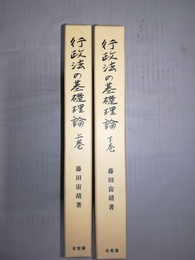 行政法の基礎理論 上巻
藤田宙靖著
有斐閣
行政法の基礎理論 下巻
藤田宙靖著
有斐閣